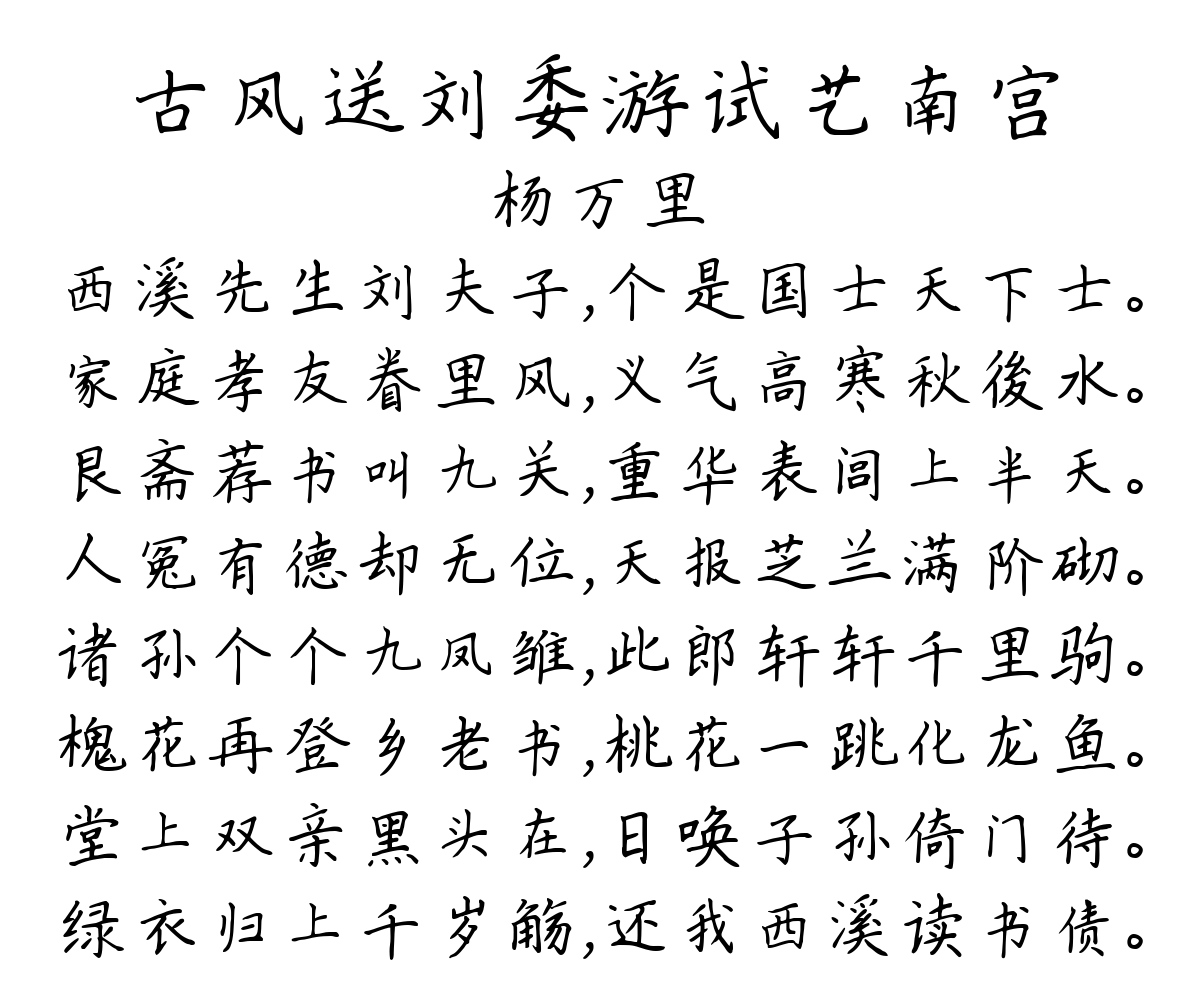 古风送刘委游试艺南宫
杨万里
西溪先生刘夫子,个是国士天下士。
家庭孝友眷里风,义气高寒秋後水。
艮斋荐书叫九关,重华表闾上半天。
人冤有德却无位,天报芝兰满阶砌。
诸孙个个九凤雏,此郎轩轩千里驹。
槐花再登乡老书,桃花一跳化龙鱼。
堂上双亲黑头在,日唤子孙倚门待。
绿衣归上千岁觞,还我西溪读书债。